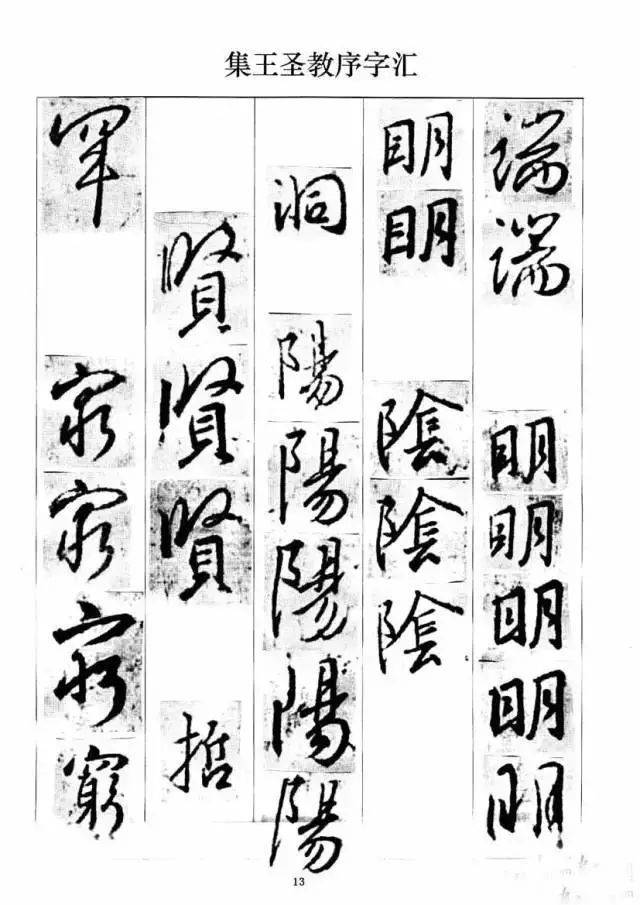 集王圣教序字汇
端端明明明明明
明明陰陰陰
洞陽陽陽陽陽
賢賢賢哲
罕窮窮窮窮
13